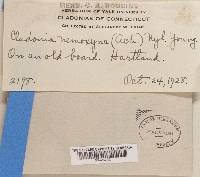 HERB. C. A. ROBBINS
HERBARIUM OF YALE UNIVERSITY
CLADONIAE OF CONNECTICUT
COLLECTED BY ALEXANDER W. EVANS
Cladonia nemoxyna (Ach.) Nyl. young
On an old board. Hartland.
2198. Oct. 24, 1928.